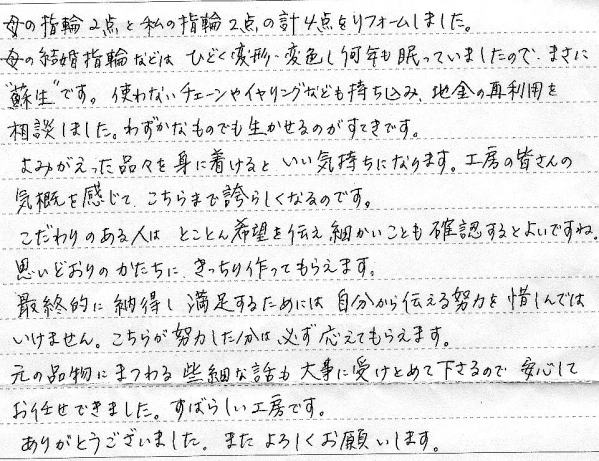 母の指輪2点と私の指輪2点の計4点をリフォームしました。
母の結婚指輪などは ひどく変形・変色し何年も眠っていましたので、まさに
"蘇生"です。使わないチェーンやイヤリングなども持ち込み、地金の再利用を
相談しました。わずかなものでも生かせるのがすてきです。
よみがえった品々を身に着けると いい気持ちになります。工房の皆さんの
気概を感じて、こちらまで誇らしくなるのです。
こだわりのある人は とことん希望を伝え 細かいことも確認するとよいですね。
思いどおりのかたちに きっちり作ってもらえます。
最終的に納得し 満足するためには 自分から伝える努力を惜しんでは
いけません。こちらが努力した分は必ず応えてもらえます。
元の品物にまつわる 些細な話も 大事に受けとめて下さるので 安心して
お任せできました。すばらしい工房です。
ありがとうございました。また よろしくお願いします。